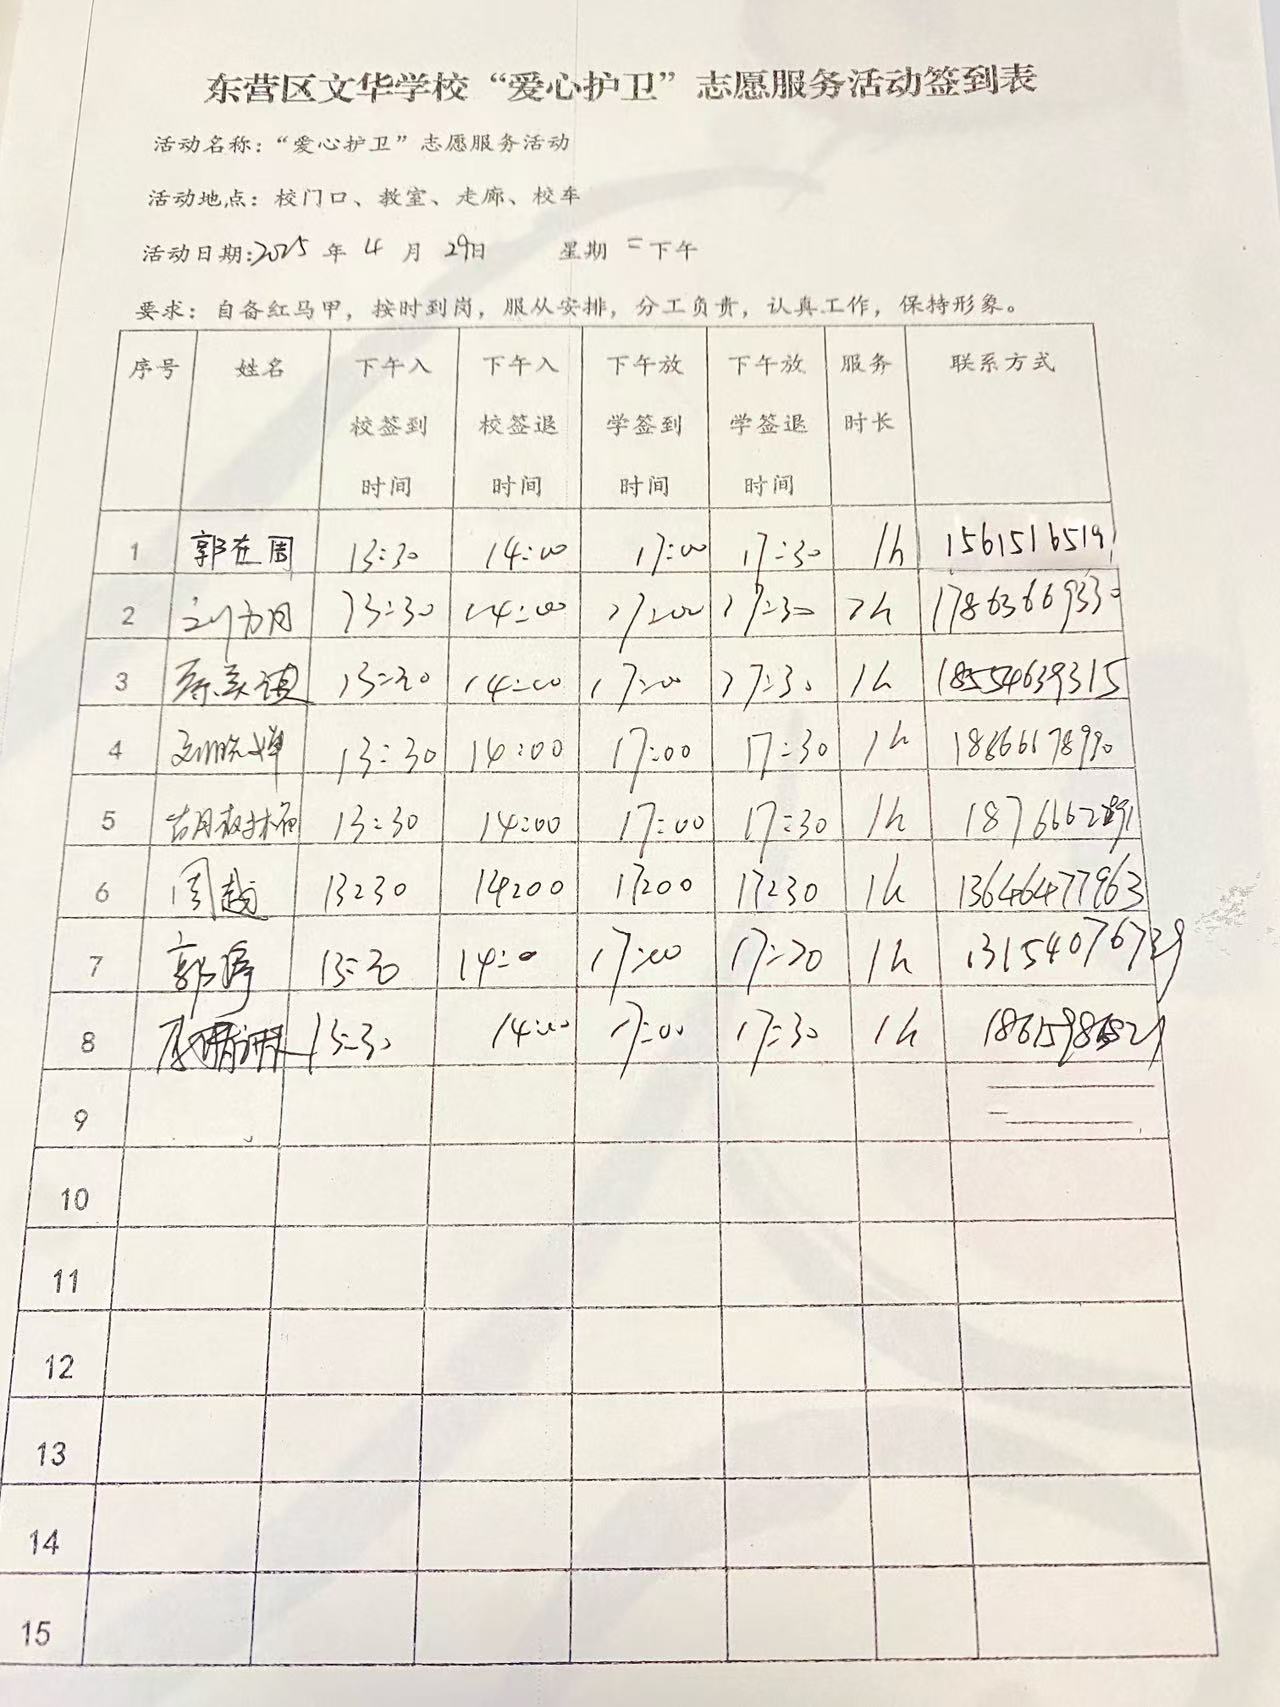 东营区文华学校“爱心护卫”志愿服务活动签到表
活动名称：“爱心护卫”志愿服务活动
活动地点：校门口、教室、走廊、校车
活动日期:2025 年 4 月 29日 星期 二 下午
要求：自备红马甲，按时到岗，服从安排，分工负责，认真工作，保持形象。
序号 姓名 下午入校签到时间 下午入校签退时间 下午放学签到时间 下午放学签退时间 服务时长 联系方式
1 郭在周 13:30 14:00 17:00 17:30 1h 15615165191
2 13:30 14:00 17:00 17:30 1h 17863669330
3 13:30 14:00 17:00 17:30 1h 18554639315
4 刘晓婵 13:30 14:00 17:00 17:30 1h 18866178990
5 胡椒楠 13:30 14:00 17:00 17:30 1h
6 周越 13:30 14:00 17:00 17:30 1h 13646477963
7 郭婷 13:30 14:00 17:00 17:30 1h 13154076739
8 13:30 14:00 17:00 17:30 1h
9
10
11
12
13
14
15